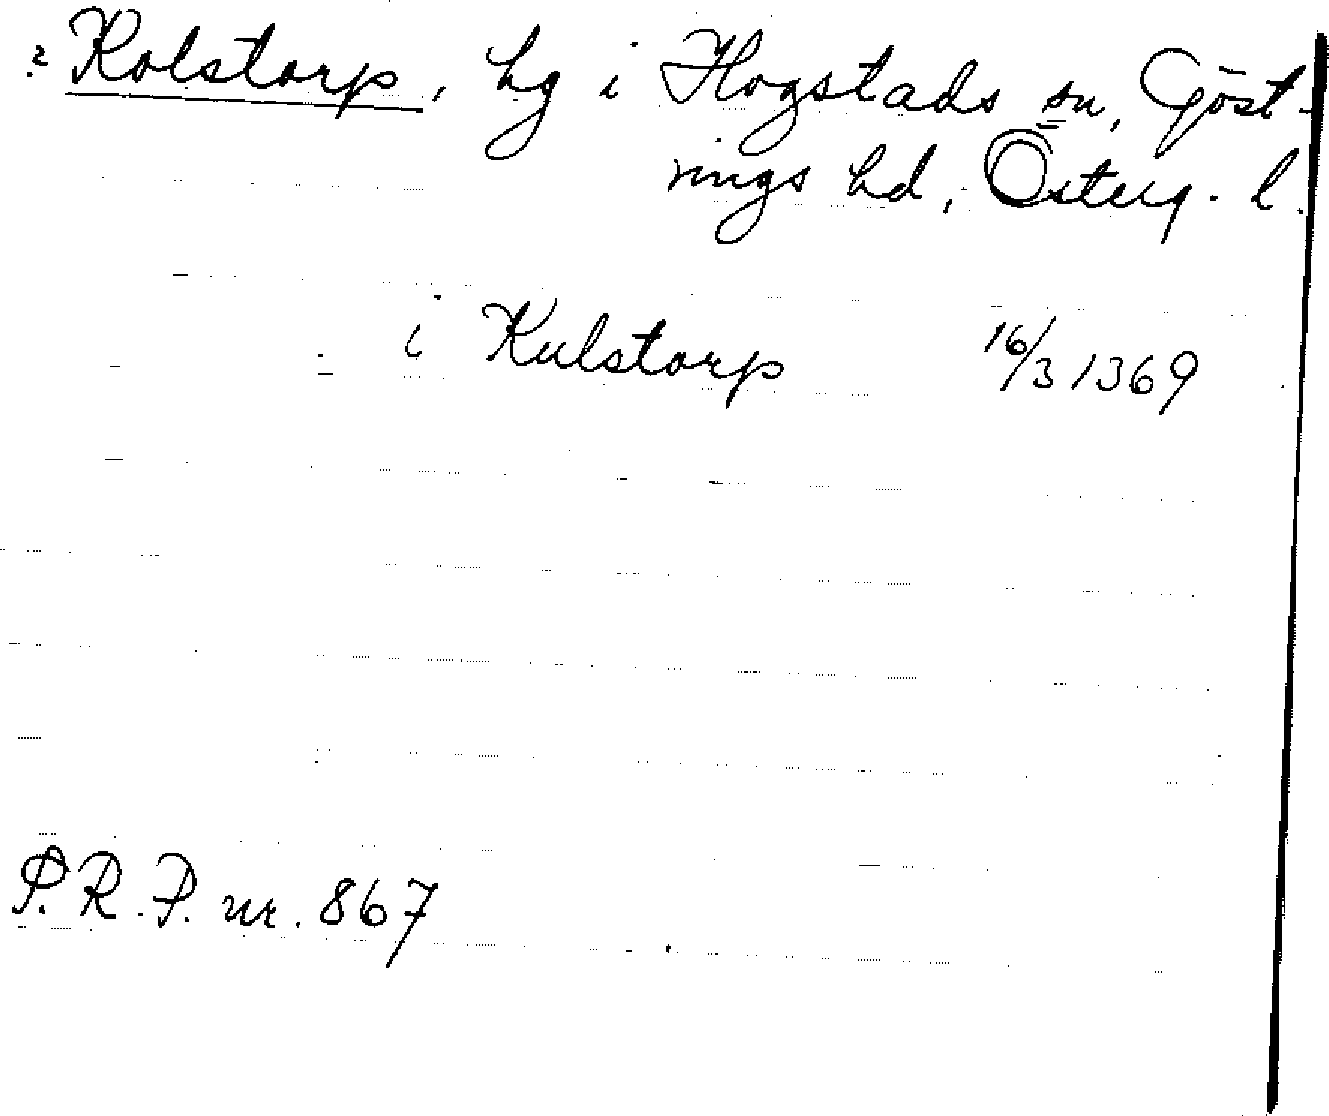 ? Kolstorp, hg i Hogstads sn, Göst-
rings hd, Österg. l.
i Kulstorp 16/3 1369
P.R.P. nr. 867